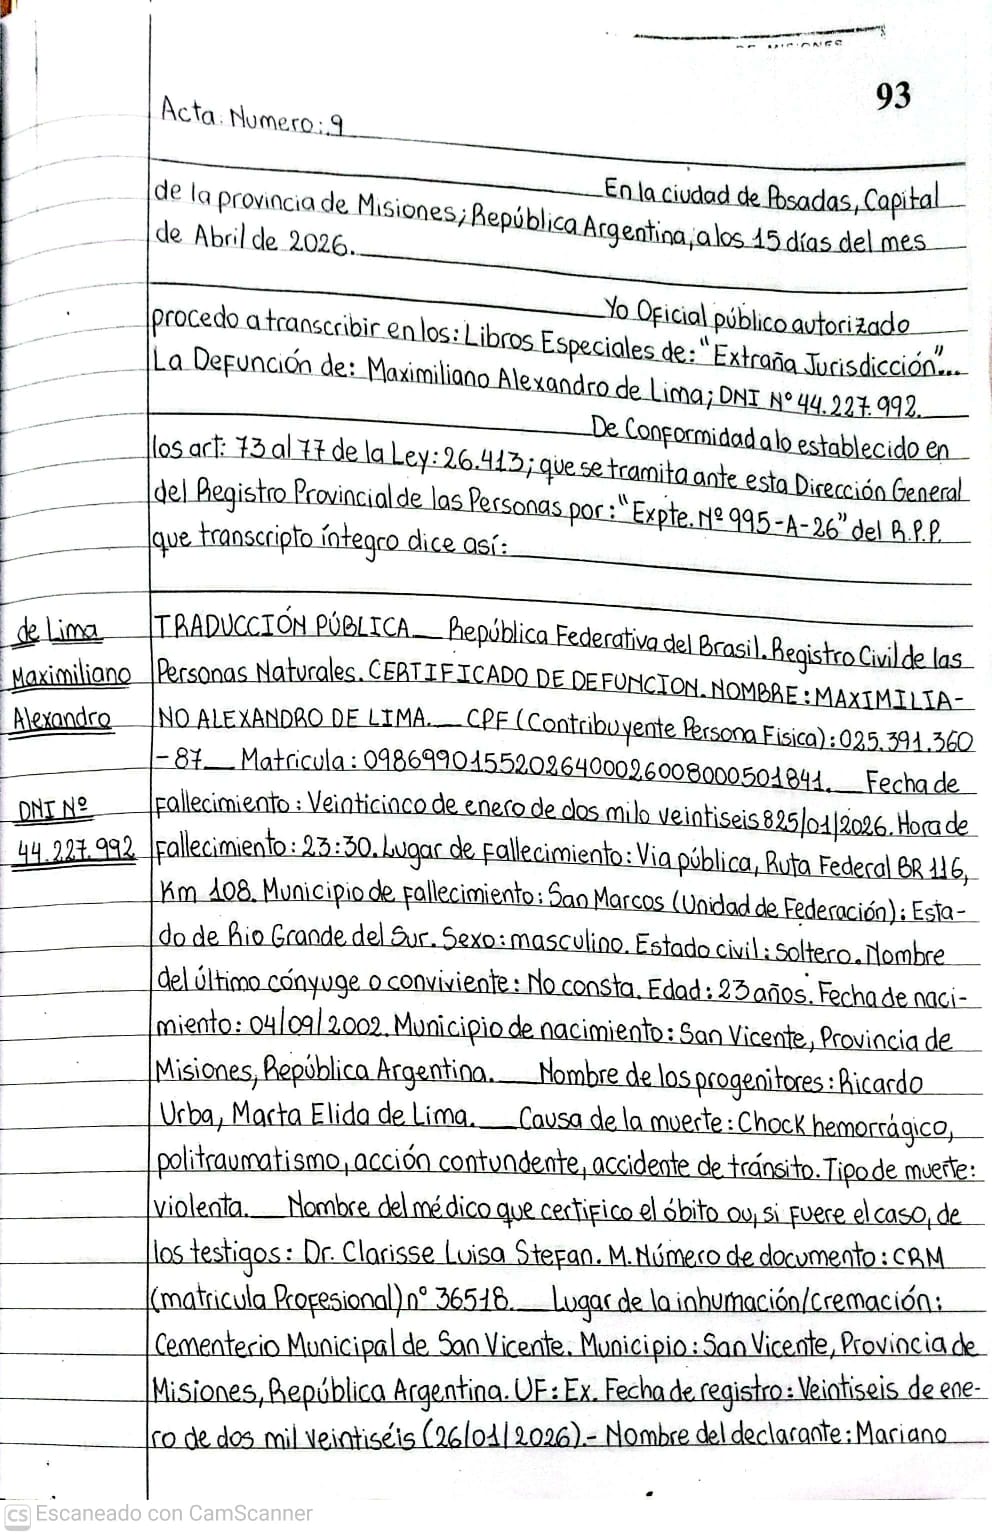 DE MISIONES
93
Acta: Numero: 9
En la ciudad de Posadas, Capital
de la provincia de Misiones; República Argentina, a los 15 días del mes
de Abril de 2026.
Yo Oficial público autorizado
procedo a transcribir en los: Libros Especiales de: "Extraña Jurisdicción"...
La Defunción de: Maximiliano Alexandro de Lima; DNI Nº 44.227.992.
De Conformidad a lo establecido en
los art: 73 al 77 de la Ley: 26.413; que se tramita ante esta Dirección General
del Registro Provincial de las Personas por: "Expte. Nº 995-A-26" del R.P.P.
que transcripto íntegro dice así:
de Lima
Maximiliano
Alexandro
DNI Nº
44.227.992
TRADUCCIÓN PÚBLICA__ República Federativa del Brasil. Registro Civil de las
Personas Naturales. CERTIFICADO DE DEFUNCION. NOMBRE: MAXIMILIA-
NO ALEXANDRO DE LIMA.__ CPF (Contribuyente Persona Fisica): 025.391.360
-87__ Matricula: 09869901552026400026008000501841.__ Fecha de
fallecimiento: Veinticinco de enero de dos milo veintiseis 825/01/2026. Hora de
fallecimiento: 23:30. Lugar de fallecimiento: Via pública, Ruta Federal BR 116,
Km 108. Municipio de fallecimiento: San Marcos (Unidad de Federación): Esta-
do de Rio Grande del Sur. Sexo: masculino. Estado civil: soltero. Nombre
del último cónyuge o conviviente: No consta. Edad: 23 años. Fecha de naci-
miento: 04/09/2002. Municipio de nacimiento: San Vicente, Provincia de
Misiones, República Argentina.__ Nombre de los progenitores: Ricardo
Urba, Marta Elida de Lima.__ Causa de la muerte: Chock hemorrágico,
politraumatismo, acción contundente, accidente de tránsito. Tipo de muerte:
violenta.__ Nombre del médico que certifico el óbito ou, si fuere el caso, de
los testigos: Dr. Clarisse Luisa Stefan. M. Número de documento: CRM
(matricula Profesional) nº 36518.__ Lugar de la inhumación/cremación:
Cementerio Municipal de San Vicente. Municipio: San Vicente, Provincia de
Misiones, República Argentina. UF: Ex. Fecha de registro: Veintiseis de ene-
ro de dos mil veintiséis (26/01/2026).- Nombre del declarante: Mariano
CS Escaneado con CamScanner